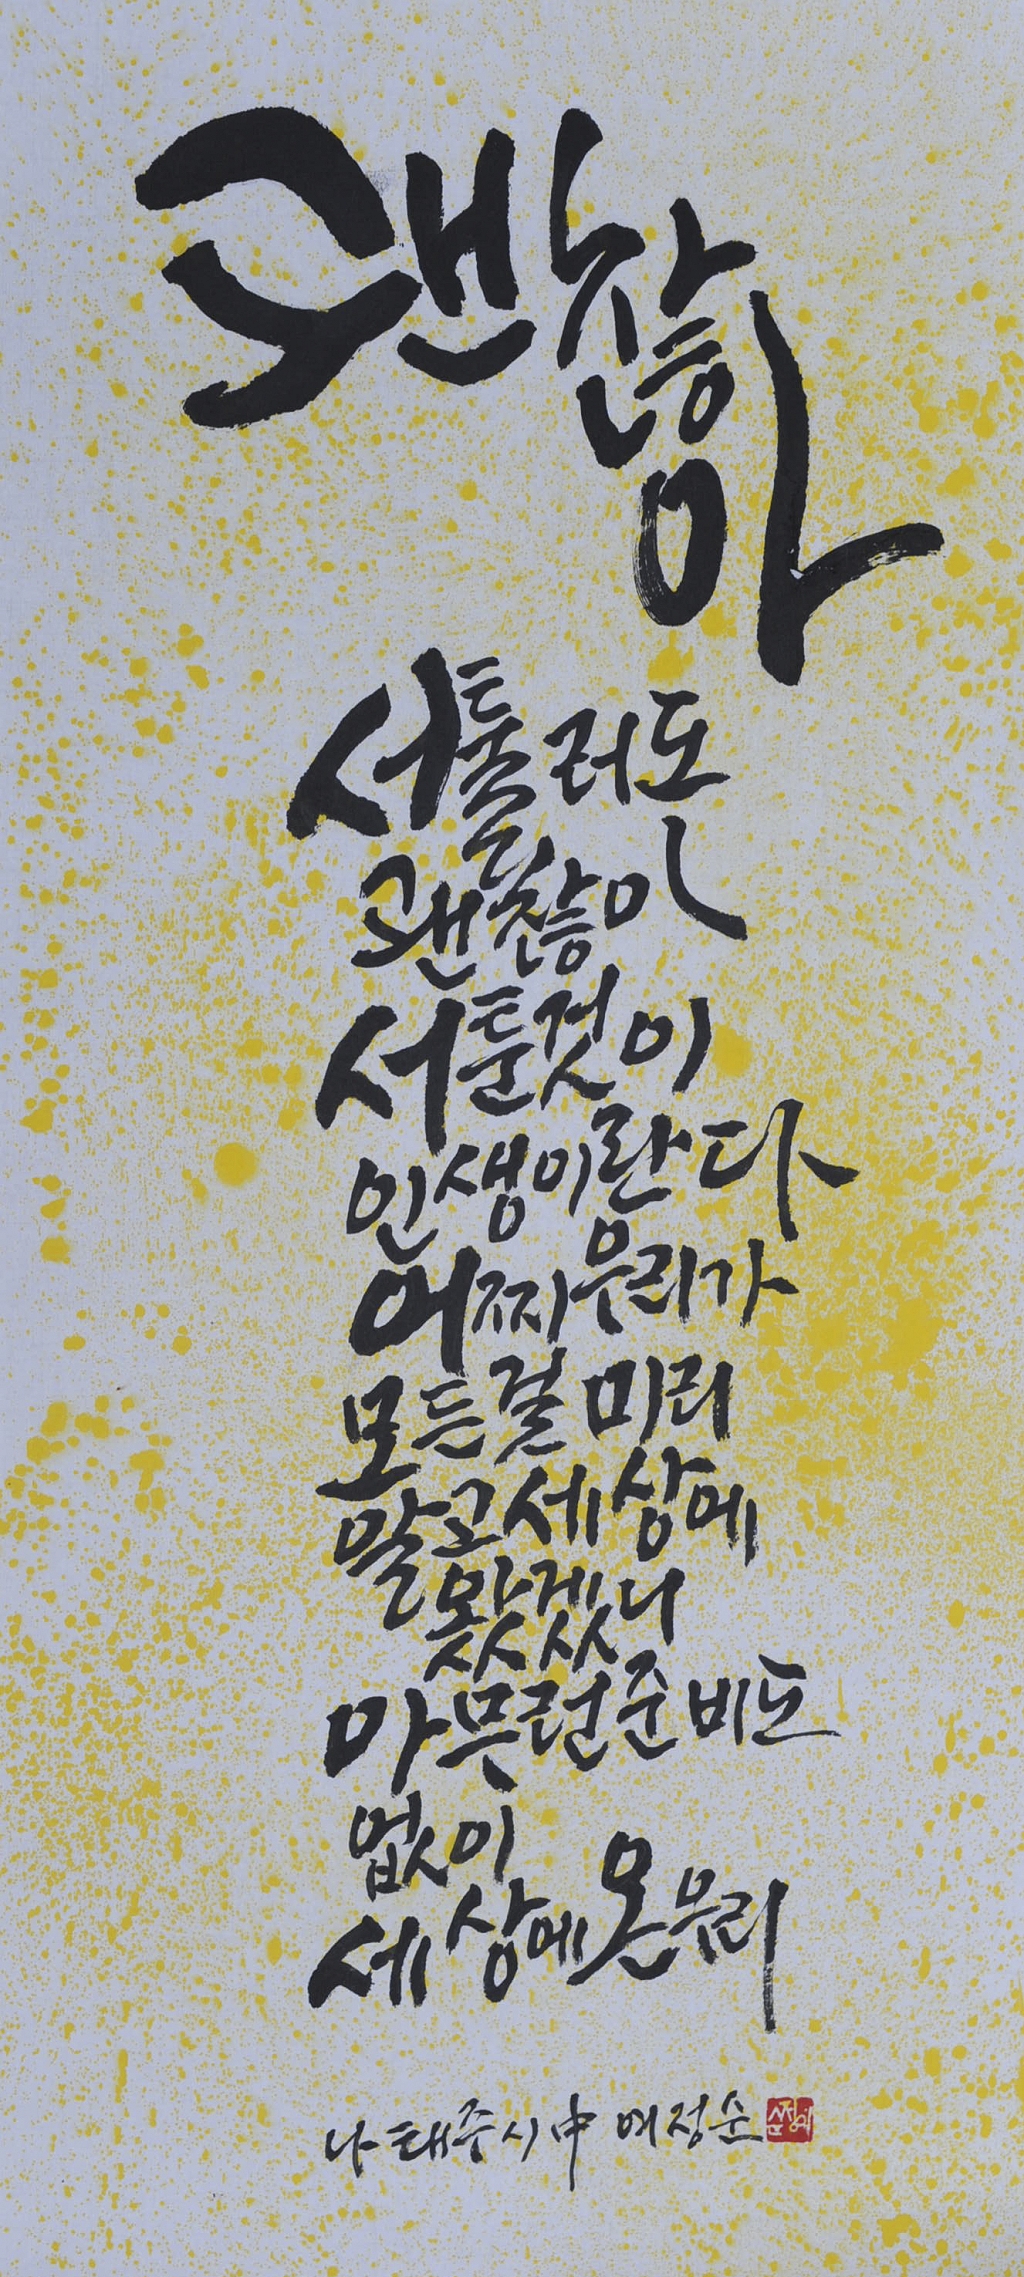 괜찮아
서툴러도
괜찮아
서툰것이
인생이란다
어찌우리가
모든걸 미리
알고세상에
왔겠니
아무런준비도
없이
세상에온우리
나태주시中 예정순